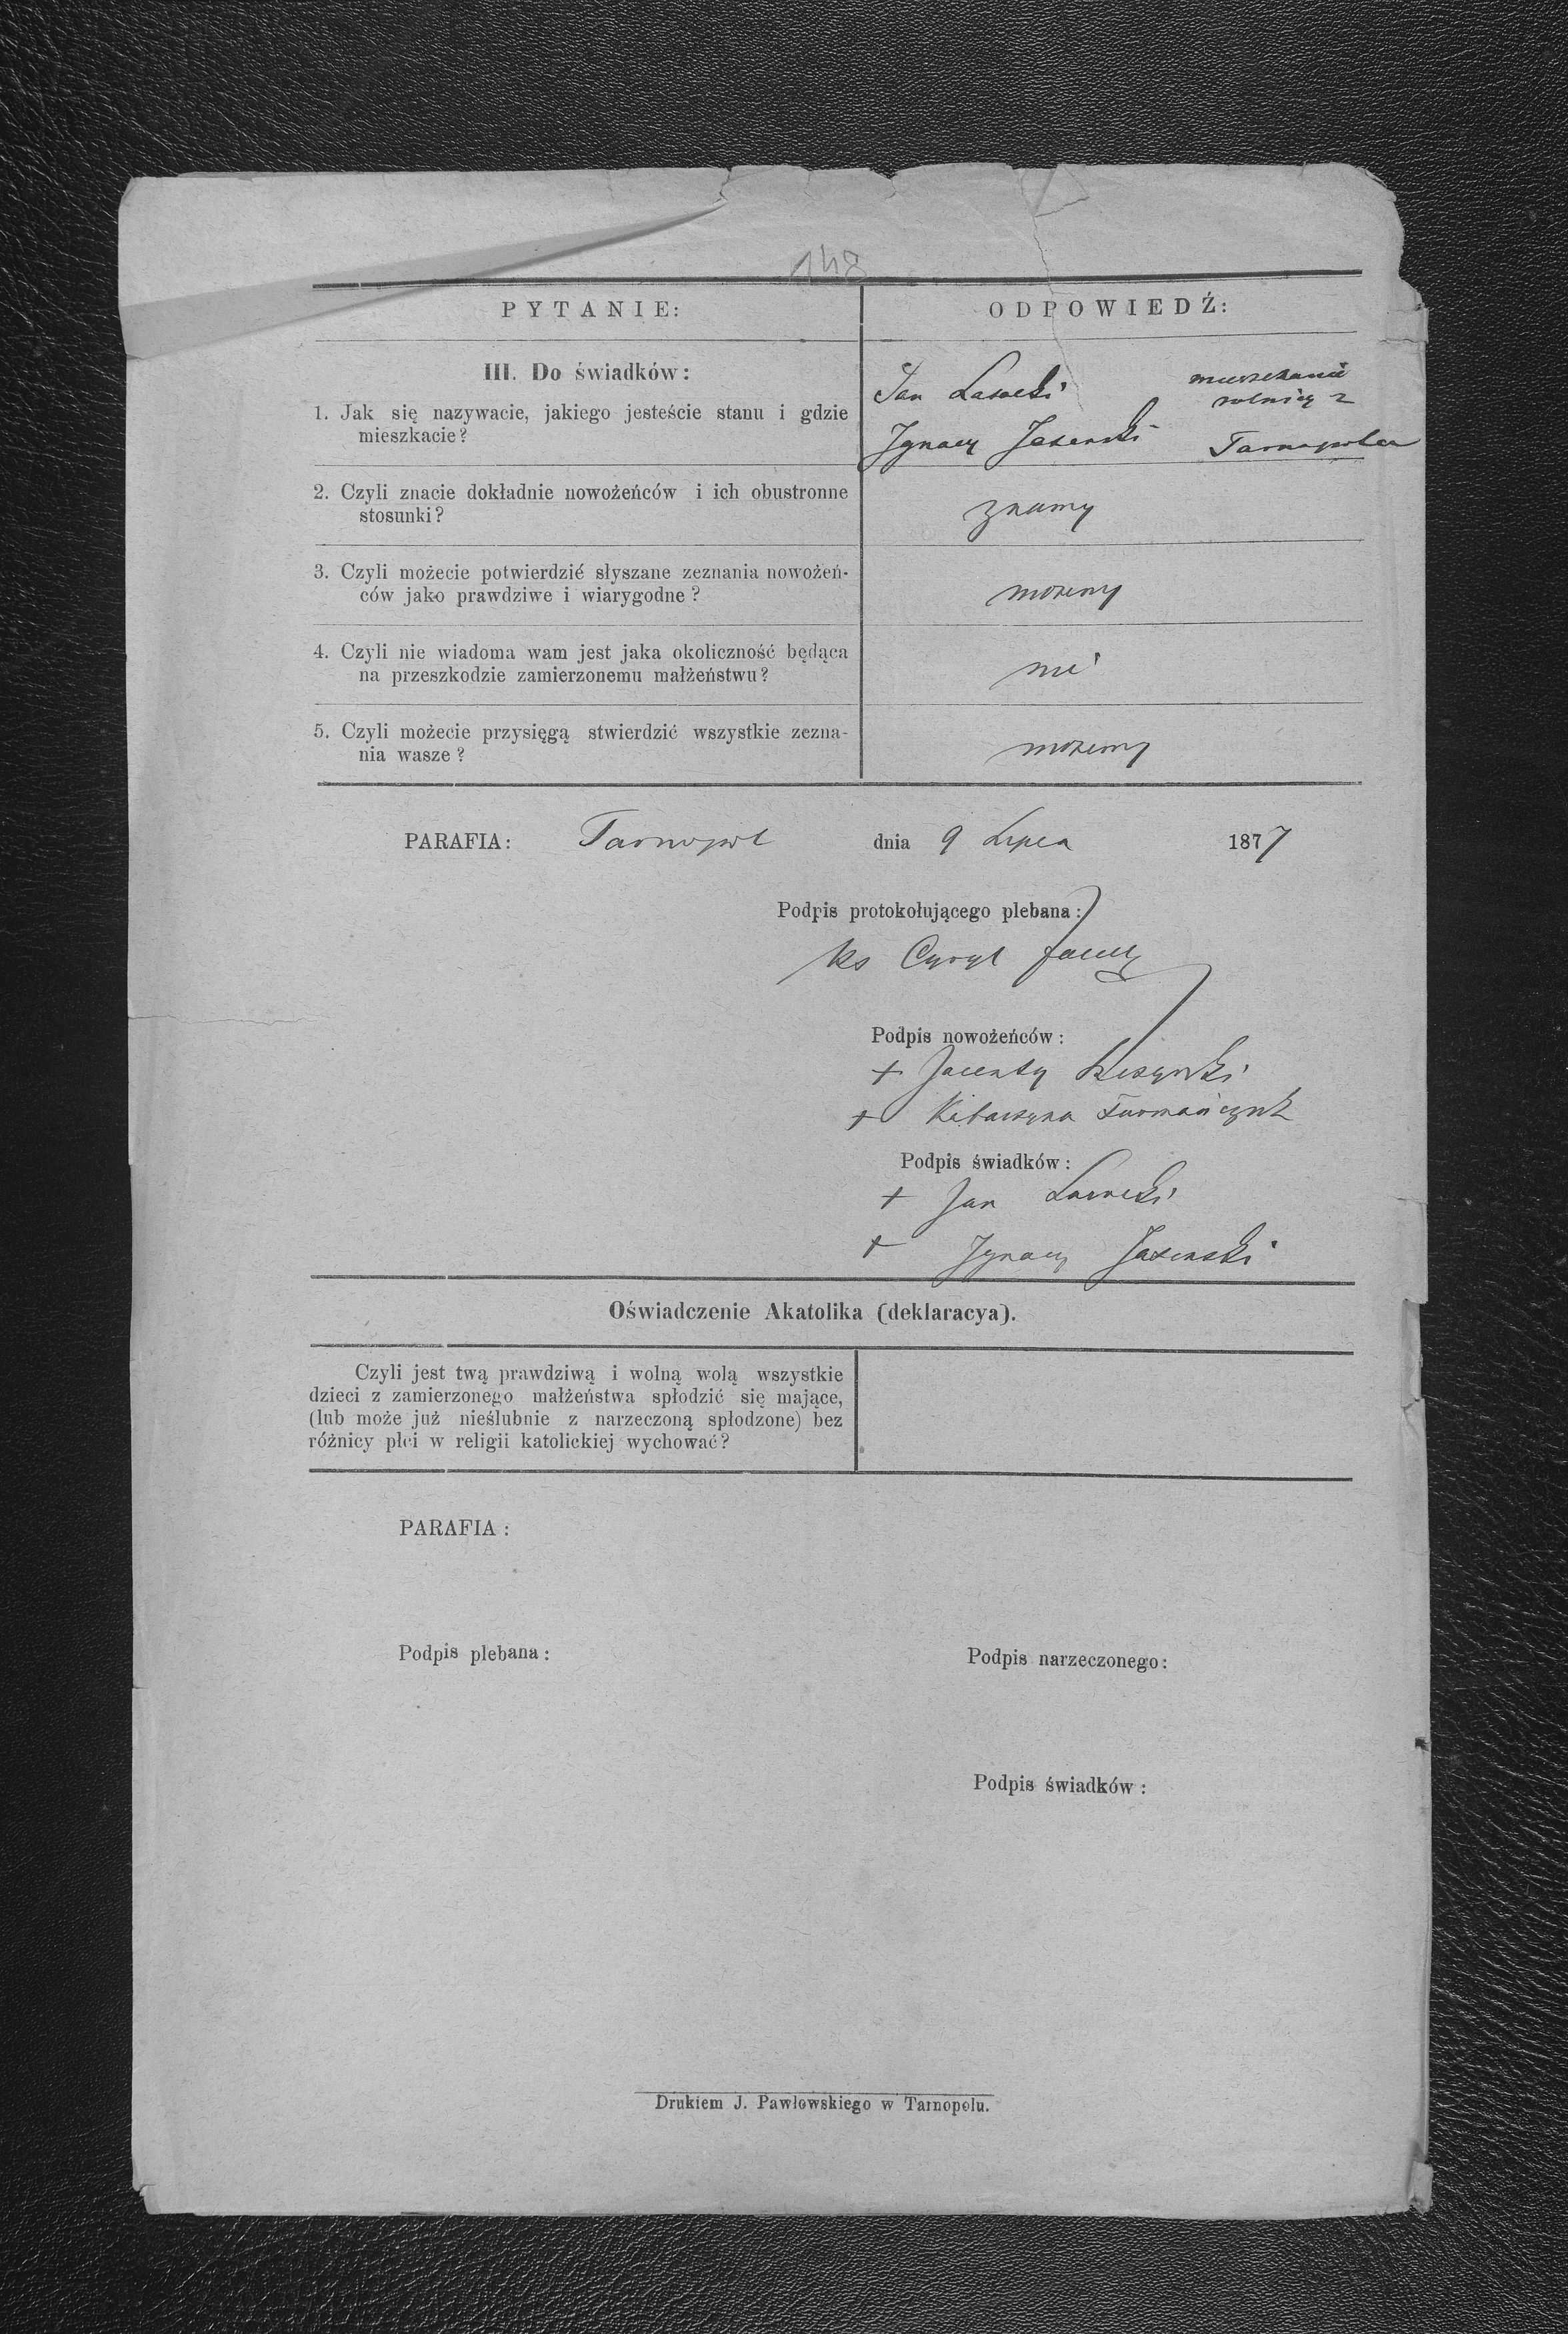 148
PYTANIE:
ODPOWIEDŹ:
III. Do świadków:
1. Jak się nazywacie, jakiego jesteście stanu i gdzie
mieszkacie?
Jan Lasocki
mieszczanie
rolnicy z
Ignacy Jasenski
Tarnopola
2. Czyli znacie dokładnie nowożeńców i ich obustronne
stosunki?
znamy
3. Czyli możecie potwierdzić słyszane zeznania nowożeń-
ców jako prawdziwe i wiarygodne?
możemy
4. Czyli nie wiadoma wam jest jaka okoliczność będąca
na przeszkodzie zamierzonemu małżeństwu?
nie
5. Czyli możecie przysięgą stwierdzić wszystkie zezna-
nia wasze?
możemy
PARAFIA: Tarnopol dnia 9 Lipca 1877
Podpis protokołującego plebana:
ks Cyryl
Podpis nowożeńców:
+ Jacenty
+ Katarzyna Furmańczuk
Podpis świadków:
+ Jan Lasocki
+ Ignacy Jasenski
Oświadczenie Akatolika (deklaracya).
Czyli jest twą prawdziwą i wolną wolą wszystkie
dzieci z zamierzonego małżeństwa spłodzić się mające,
(lub może już nieślubnie z narzeczoną spłodzone) bez
różnicy płci w religii katolickiej wychować?
PARAFIA:
Podpis plebana:
Podpis narzeczonego:
Podpis świadków:
Drukiem J. Pawłowskiego w Tarnopolu.